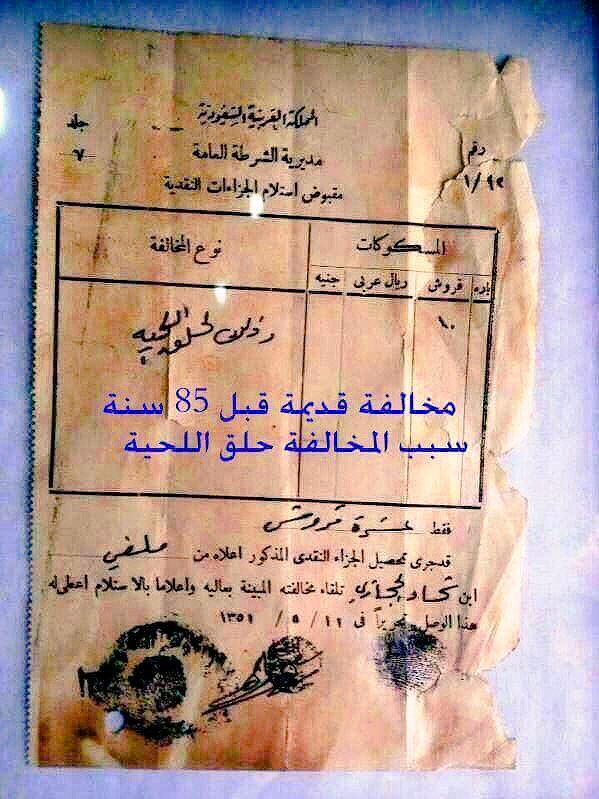 المملكة العربية السعودية
رقم
جلد
مديرية الشرطة العامة
٧
١/٩٢
مقبوض استلام الجزاءات النقدية
المسكوكات
نوع المخالفة
باره
قروش
ريال عربي
جنيه
١٠
وذلك لحلقه اللحيه
مخالفة قديمة قبل 85 سنة
سبب المخالفة حلق اللحية
فقط عشرة قروش
قد جرى تحصيل الجزاء النقدي المذكور اعلاه من
ابن تلقاء مخالفته المبينة بعاليه واعلاما بالاستلام اعطى له
هذا الوصل تحريراً في ١١ / ٥ / ١٣٥١